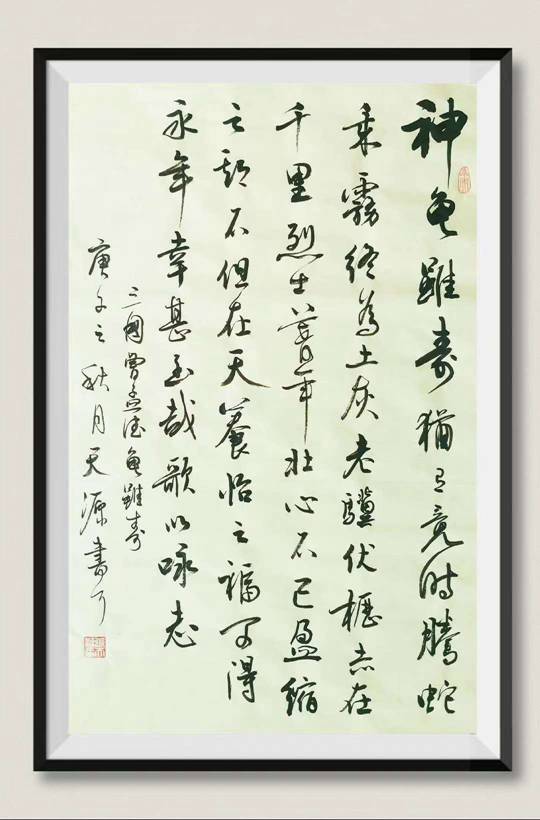 神龜雖壽猶有竟时騰蛇
乘霧終為土灰老驥伏櫪志在
千里烈士暮年壯心不已盈縮
之期不但在天養怡之福可得
永年幸甚至哉歌以咏志
三國曹孟德龜雖壽
庚子之秋月天源書